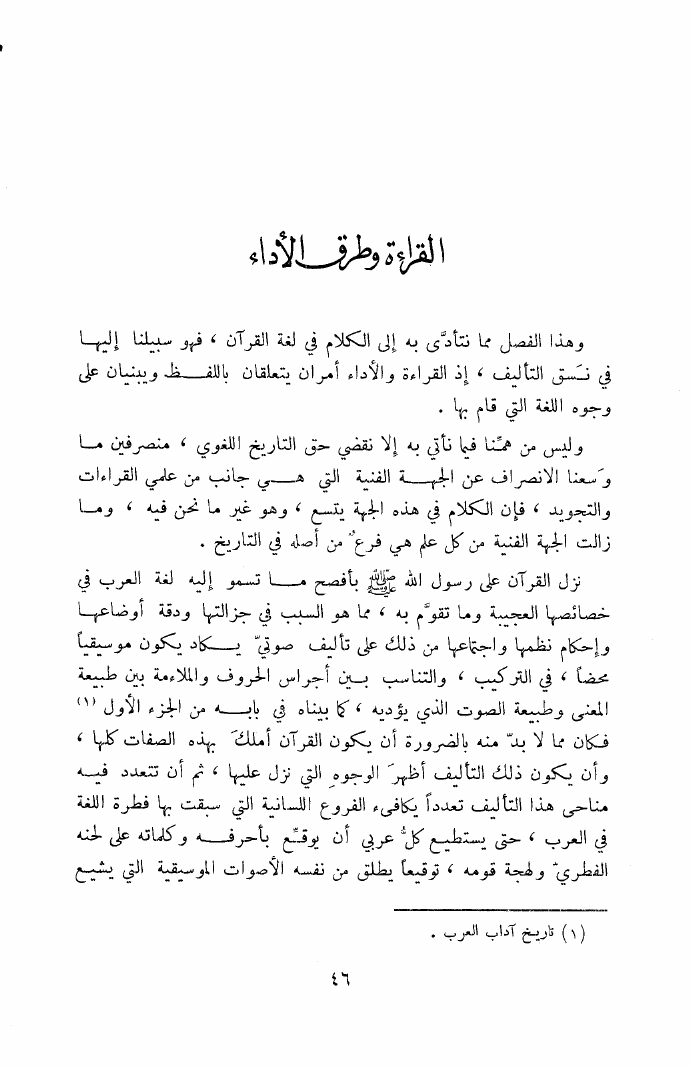 القراءة وطرق الأداء
وهذا الفصل مما نتأدَّى به إلى الكلام في لغة القرآن ، فهو سبيلنا إليها
في نَسق التأليف ، إذ القراءة والأداء أمران يتعلقان باللفظ ويبنيان على
وجوه اللغة التي قام بها .
وليس من همِّنا فيما نأتي به إلا نقضي حق التاريخ اللغوي ، منصرفين ما
وَسعنا الانصراف عن الجهة الفنية التي هي جانب من علمي القراءات
والتجويد ، فإن الكلام في هذه الجهة يتسع ، وهو غير ما نحن فيه ، وما
زالت الجهة الفنية من كل علم هي فرعٌ من أصله في التاريخ .
نزل القرآن على رسول الله ﷺ بأفصح ما تسمو إليه لغة العرب في
خصائصها العجيبة وما تقوَّم به ، مما هو السبب في جزالتها ودقة أوضاعها
وإحكام نظمها واجتماعها من ذلك على تأليف صوتيّ يكاد يكون موسيقياً
محضاً ، في التركيب ، والتناسب بين أجراس الحروف والملاءمة بين طبيعة
المعنى وطبيعة الصوت الذي يؤديه ، كما بيناه في بابه من الجزء الأول (١)
فكان مما لا بدّ منه بالضرورة أن يكون القرآن أملكَ بهذه الصفات كلها ،
وأن يكون ذلك التأليف أظهرَ الوجوهِ التي نزل عليها ، ثم أن تتعدد فيه
مناحى هذا التأليف تعدداً يكافىء الفروع اللسانية التي سبقت بها فطرة اللغة
في العرب ، حتى يستطيع كلُّ عربي أن يوقّع بأحرفه وكلماته على لحنه
الفطريّ ولهجة قومه ، توقيعاً يطلق من نفسه الأصوات الموسيقية التي يشيع
(١) تاريخ آداب العرب .
٤٦